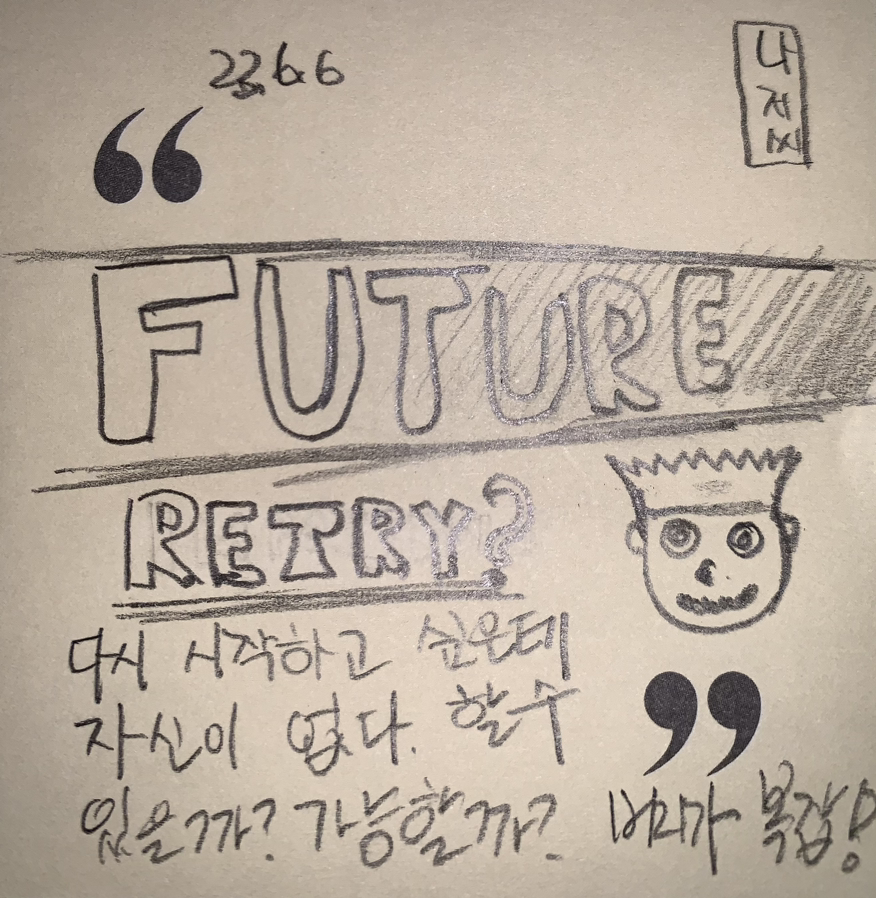 23.6.6
나
저
씨
“
FUTURE
RETRY?
다시 시작하고 싶은데
자신이 없다. 할수
있을까? 가능할까?
”
머리가 복잡!